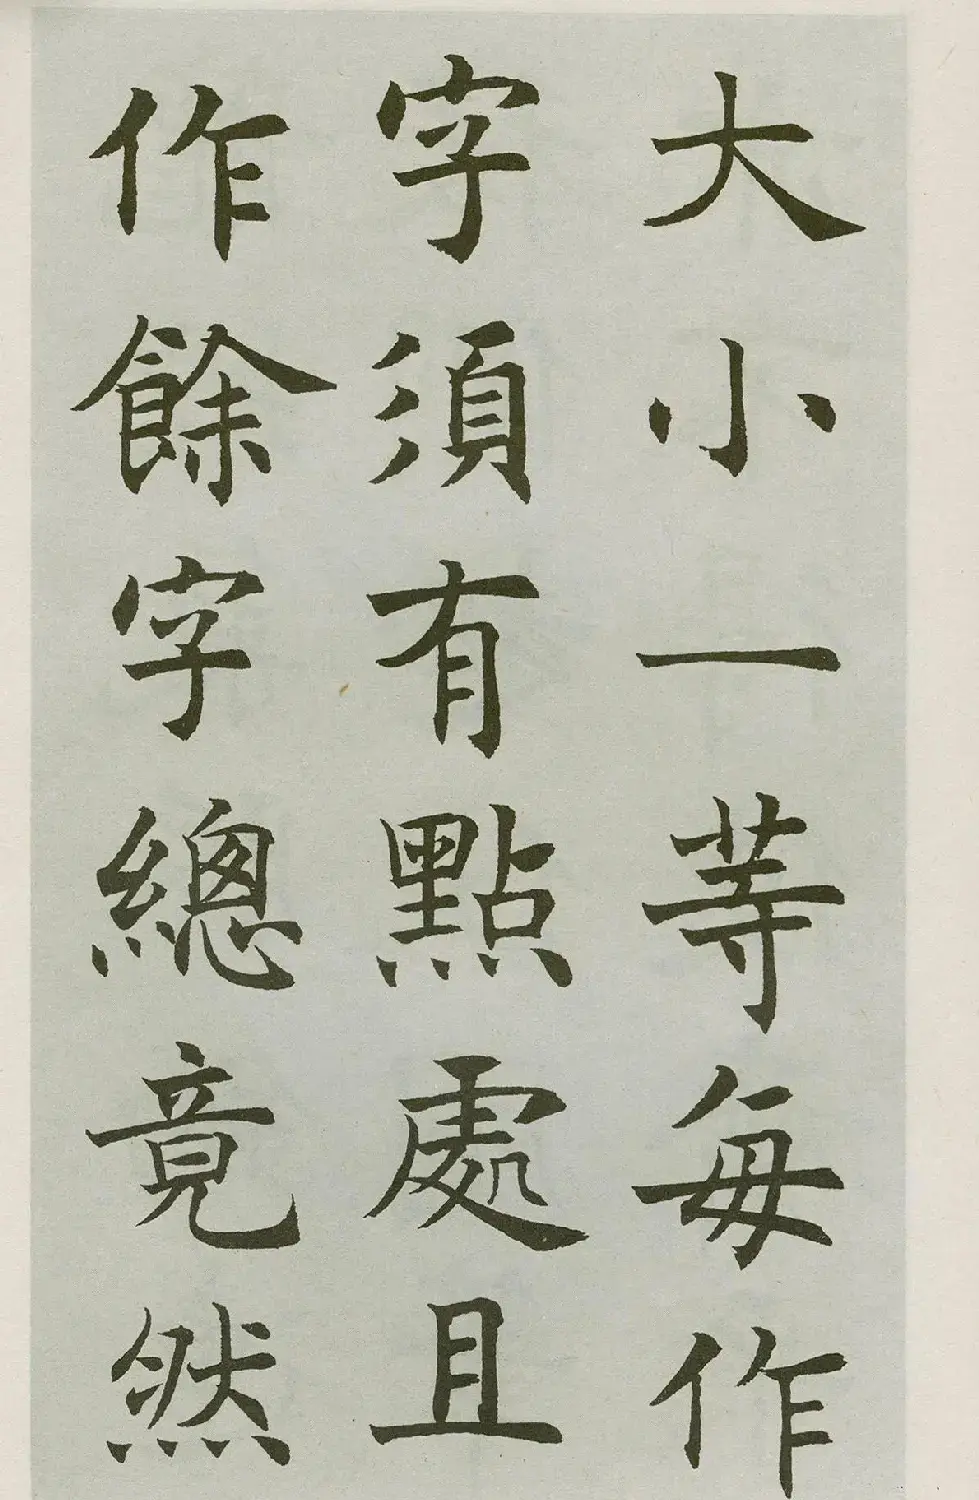 大小一等每作
字須有點處且
作餘字總竟然